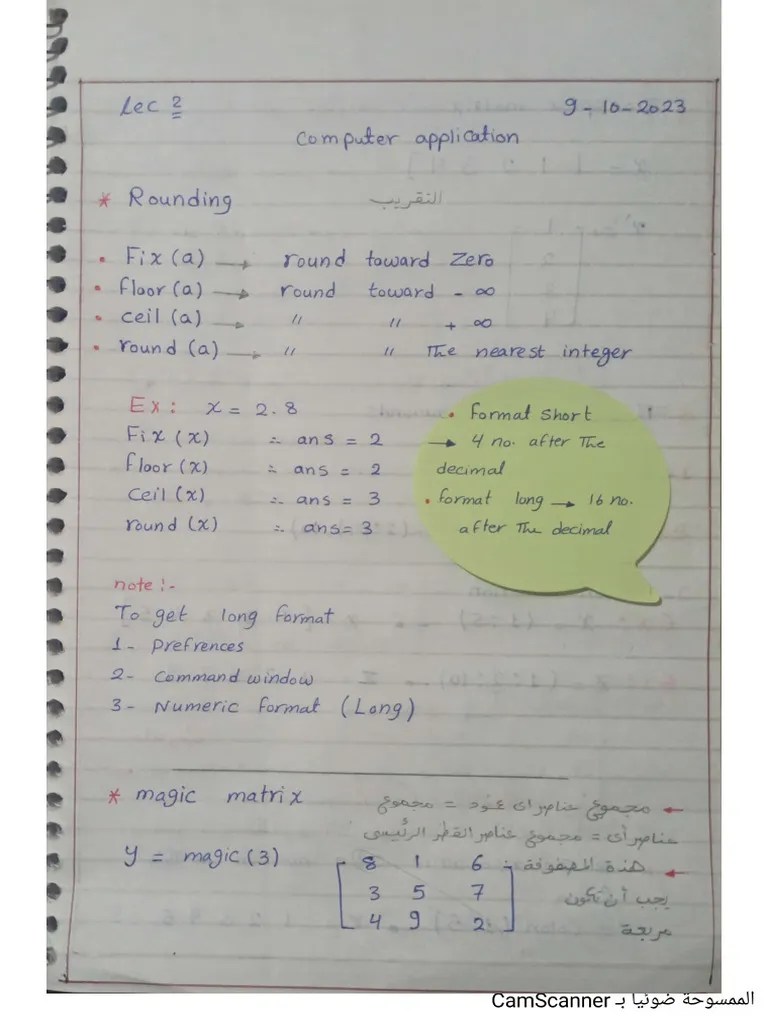 Lec 2
9-10-2023
Computer application
* Rounding التقريب
• Fix (a) → round toward Zero
• floor (a) → round toward - ∞
• ceil (a) → // // + ∞
• round (a) → // // The nearest integer
Ex: x = 2.8
Fix (x) ∴ ans = 2
floor (x) ∴ ans = 2
Ceil (x) ∴ ans = 3
round (x) ∴ ans = 3
• format short
→ 4 no. after The
decimal
• format long → 16 no.
after The decimal
note :-
To get long format
1- Prefrences
2- Command window
3- Numeric format (Long)
* magic matrix
← مجموع عناصر اى عمود = مجموع
عناصر أى = مجموع عناصر القطر الرئيسى
← هذة المصفوفة
يجب أن تكون
مربعة
y = magic (3)
8 1 6
3 5 7
4 9 2
الممسوحة ضوئيا بـ CamScanner